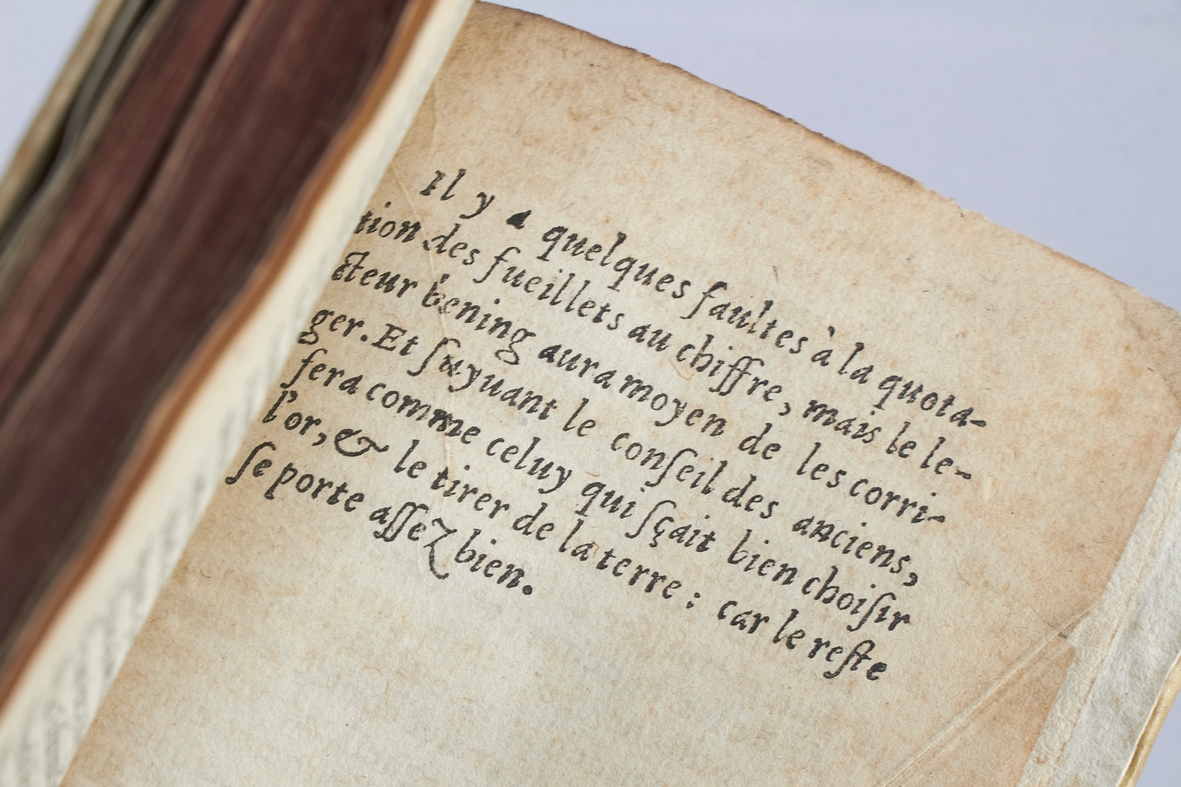 Il y a quelques faultes à la quota-
tion des fueillets au chiffre, mais le le-
cteur bening aura moyen de les corri-
ger. Et ſuyuant le conſeil des anciens,
fera comme celuy qui ſçait bien choiſir
l'or, & le tirer de la terre : car le reſte
ſe porte aſſez bien.